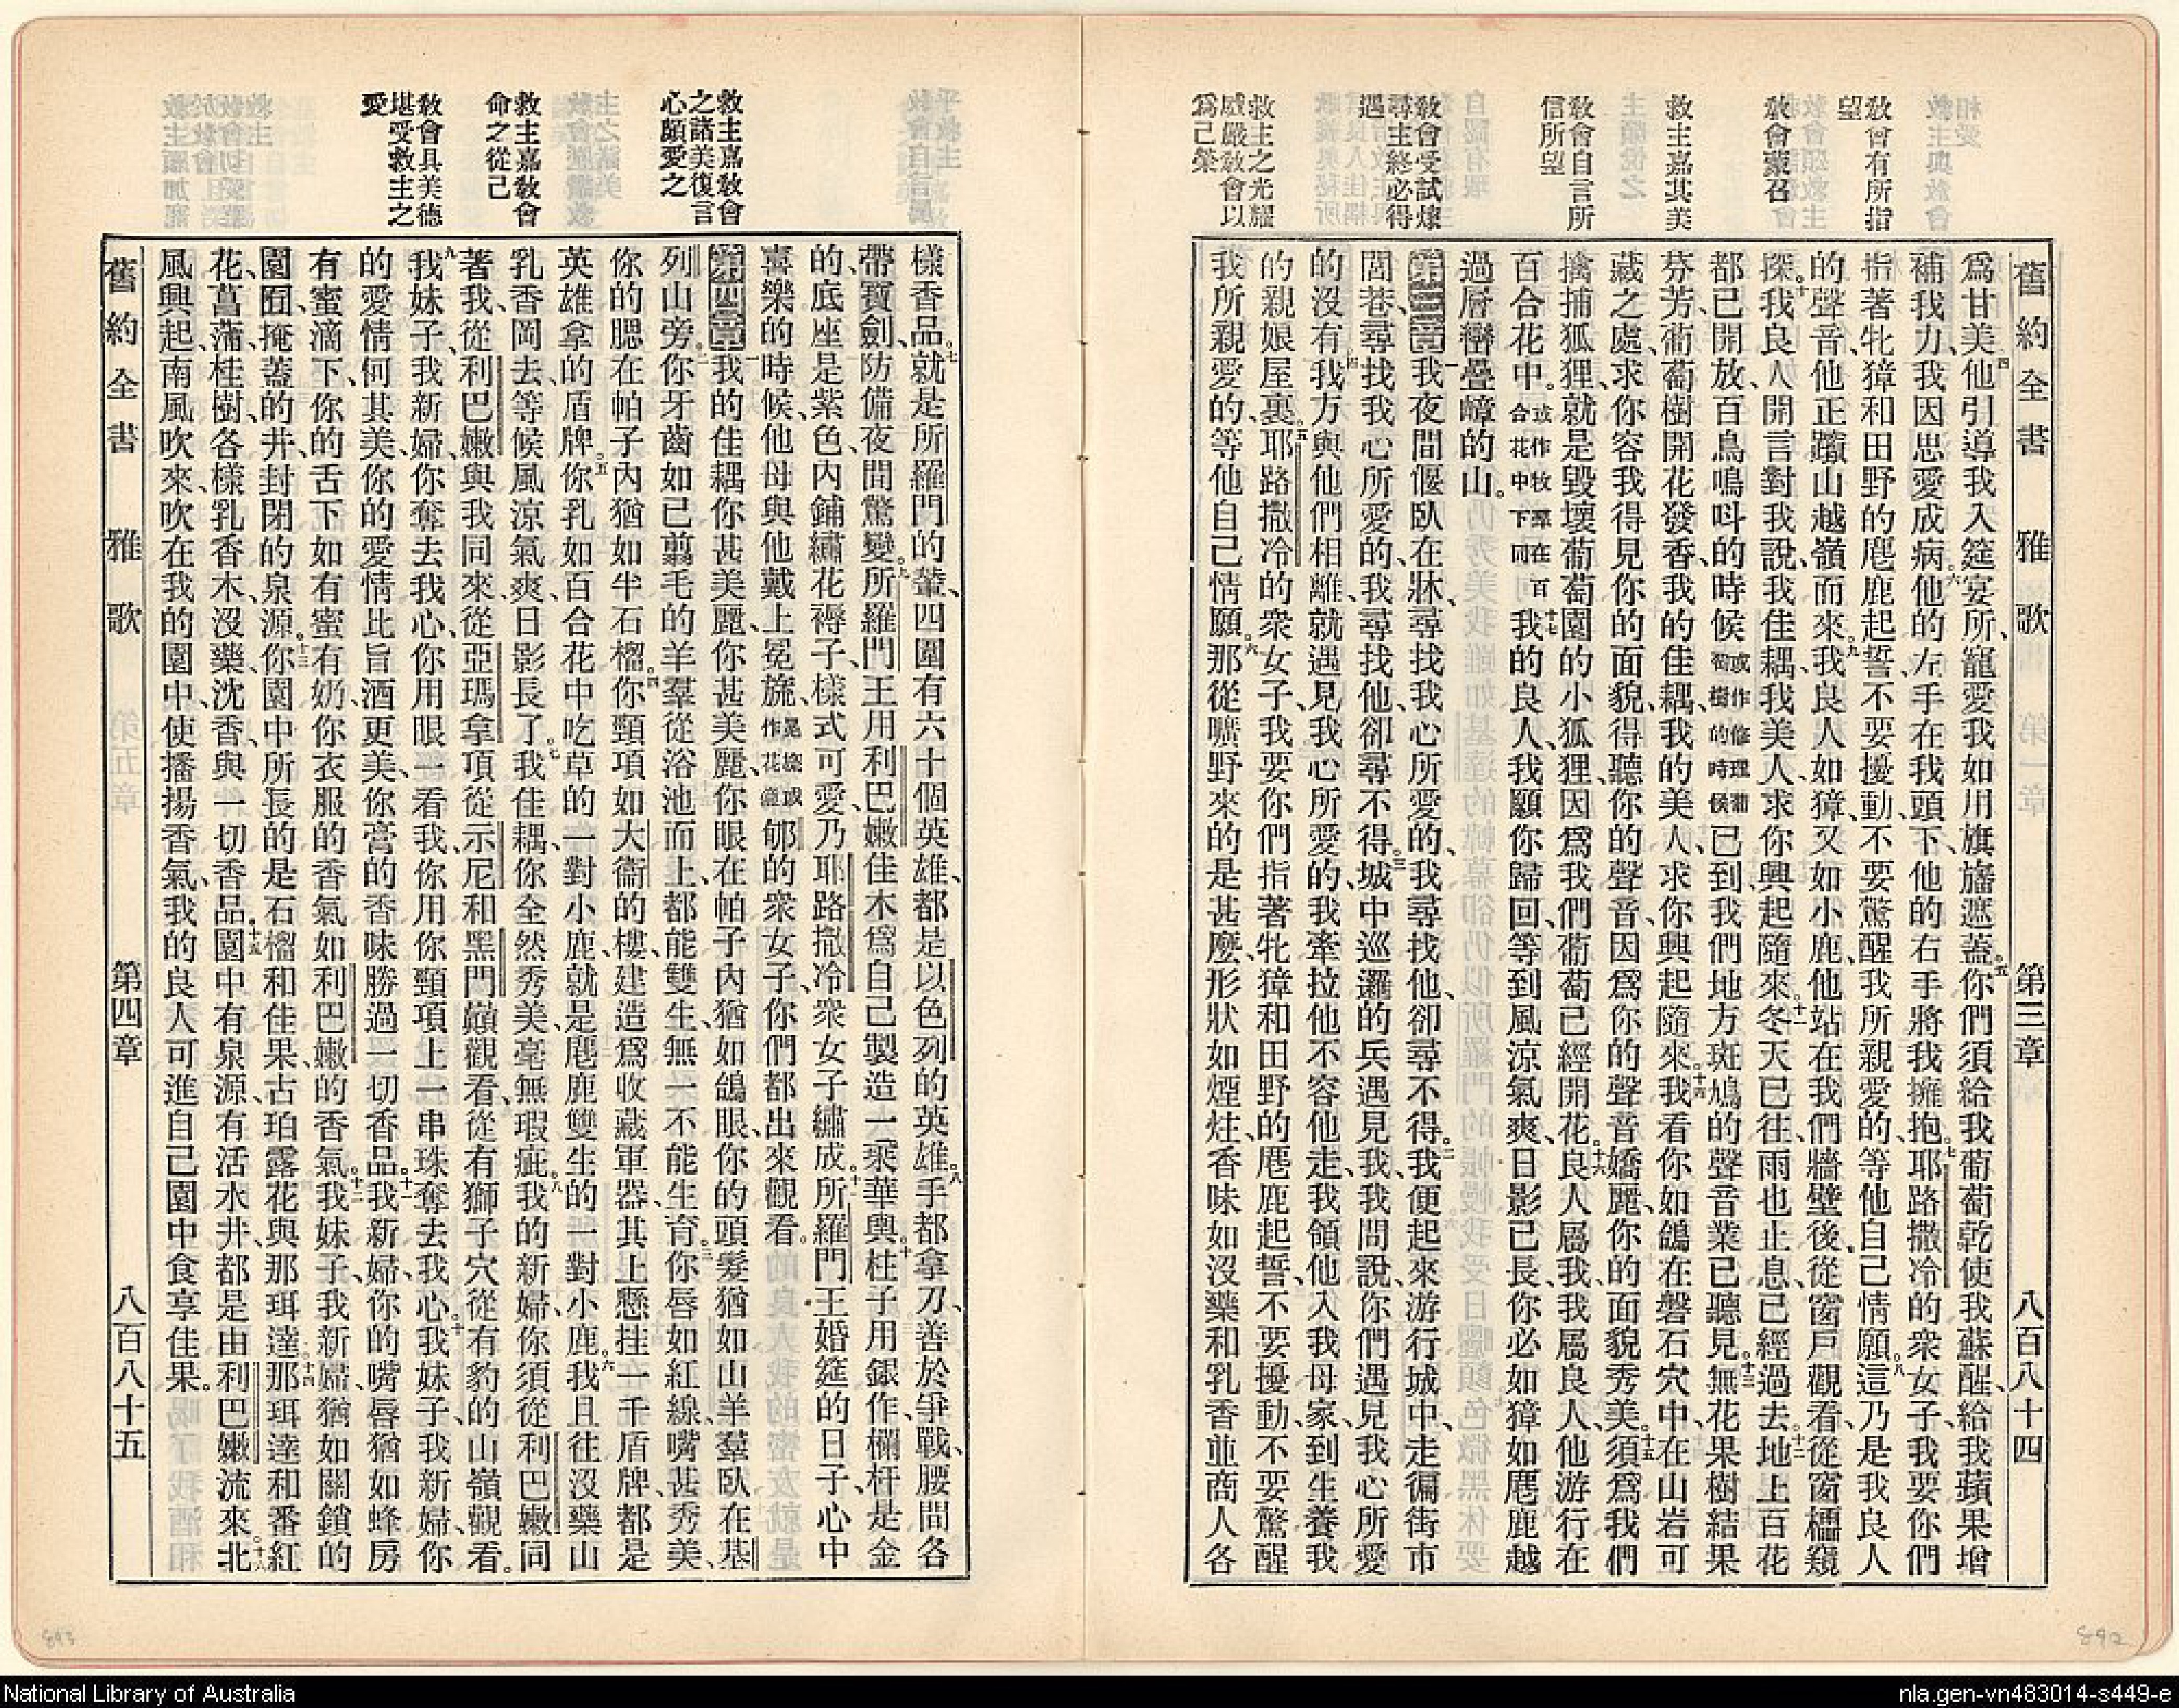 舊約全書 雅歌 第三章 八百八十四
敎會有所指
望
敎會蒙召
救主嘉其美
敎會自言所
信所望
敎會受試煉
尋主終必得
遇
救主之光耀
威嚴敎會以
爲己榮
爲甘美。四他引導我入筵宴所、寵愛我如用旗旛遮蓋。五你們須給我葡萄乾使我蘇醒、給我蘋果增
補我力、我因思愛成病。六他的左手在我頭下、他的右手將我擁抱。七耶路撒冷的衆女子、我要你們
指著牝獐和田野的麀鹿起誓、不要擾動、不要驚醒我所親愛的、等他自己情願。八這乃是我良人
的聲音、他正躋山越嶺而來。九我良人如獐、又如小鹿、他站在我們牆壁後、從窗戶觀看、從窗櫺窺
探。十我良人開言對我說、我佳耦、我美人、求你興起隨來。十一冬天已往、雨也止息、已經過去。十二地上百花
都已開放、百鳥鳴呌的時候或作修理葡萄樹的時候已到、我們地方斑鳩的聲音業已聽見。十三無花果樹結果
芬芳、葡萄樹開花發香、我的佳耦、我的美人、求你興起隨來。十四我看你如鴿在磐石穴中、在山岩可
藏之處、求你容我得見你的面貌、得聽你的聲音、因爲你的聲音嬌麗、你的面貌秀美。十五須爲我們
擒捕狐狸、就是毀壞葡萄園的小狐狸、因爲我們葡萄已經開花。十六良人屬我、我屬良人、他游行在
百合花中。或作牧羣在百合花中下同十七我的良人、我願你歸回、等到風涼氣爽、日影已長、你必如獐如麀鹿越
過層巒疊嶂的山。
第三章一我夜間偃臥在牀、尋找我心所愛的、我尋找他、卻尋不得。二我便起來游行城中、走徧街市
閭巷、尋找我心所愛的、我尋找他、卻尋不得。三城中巡邏的兵遇見我、我問說、你們遇見我心所愛
的沒有、四我方與他們相離、就遇見我心所愛的、我牽拉他不容他走、我領他入我母家、到生養我
的親娘屋裏。五耶路撒冷的衆女子、我要你們指著牝獐和田野的麀鹿起誓、不要擾動、不要驚醒
我所親愛的、等他自己情願。六那從曠野來的是甚麽、形狀如煙炷、香味如沒藥和乳香並商人各
救主嘉敎會
之諸美復言
心願愛之
救主嘉敎會
命之從己
敎會具美德
堪受救主之
愛
樣香品。七就是所羅門的輦、四圍有六十個英雄、都是以色列的英雄。八手都拿刀、善於爭戰、腰間各
帶寶劍、防備夜間驚變。九所羅門王用利巴嫩佳木爲自己製造一乘華輿。十柱子用銀作、欄杆是金
的、底座是紫色、內鋪繡花褥子、樣式可愛、乃耶路撒冷衆女子繡成。十一所羅門王婚筵的日子、心中
喜樂的時候、他母與他戴上冕旒、冕旒或作花冠郇的衆女子、你們都出來觀看。
第四章一我的佳耦、你甚美麗、你甚美麗、你眼在帕子內猶如鴿眼、你的頭髮猶如山羊羣臥在基
列山旁。二你牙齒如已翦毛的羊羣從浴池而上、都能雙生、無一不能生育。三你唇如紅線、嘴甚秀美、
你的腮在帕子內猶如半石榴。四你頸項如大衞的樓、建造爲收藏軍器、其上懸挂一千盾牌、都是
英雄拿的盾牌。五你乳如百合花中吃草的一對小鹿、就是麀鹿雙生的一對小鹿。六我且往沒藥山
乳香岡去、等候風涼氣爽、日影長了。七我佳耦、你全然秀美、毫無瑕疵。八我的新婦、你須從利巴嫩同
著我、從利巴嫩與我同來、從亞瑪拿頂、從示尼和黑門巔觀看、從有獅子穴從有豹的山嶺觀看。
九我妹子、我新婦、你奪去我心、你用眼一看我、你用你頸項上一串珠奪去我心。十我妹子、我新婦、你
的愛情何其美、你的愛情比旨酒更美、你膏的香味勝過一切香品。十一我新婦、你的嘴唇猶如蜂房
有蜜滴下、你的舌下如有蜜有奶、你衣服的香氣如利巴嫩的香氣。十二我妹子、我新婦、猶如關鎖的
園囿、掩蓋的井、封閉的泉源。十三你園中所長的是石榴和佳果、古珀露花與那珥達。十四那珥達和番紅
花、菖蒲、桂樹、各樣乳香木、沒藥、沈香、與一切香品。十五園中有泉源、有活水井、都是由利巴嫩流來。十六北
風興起、南風吹來、吹在我的園中、使播揚香氣、我的良人可進自己園中食享佳果。
舊約全書 雅歌 第四章 八百八十五
893
892
National Library of Australia
nla.gen-vn483014-s449-e